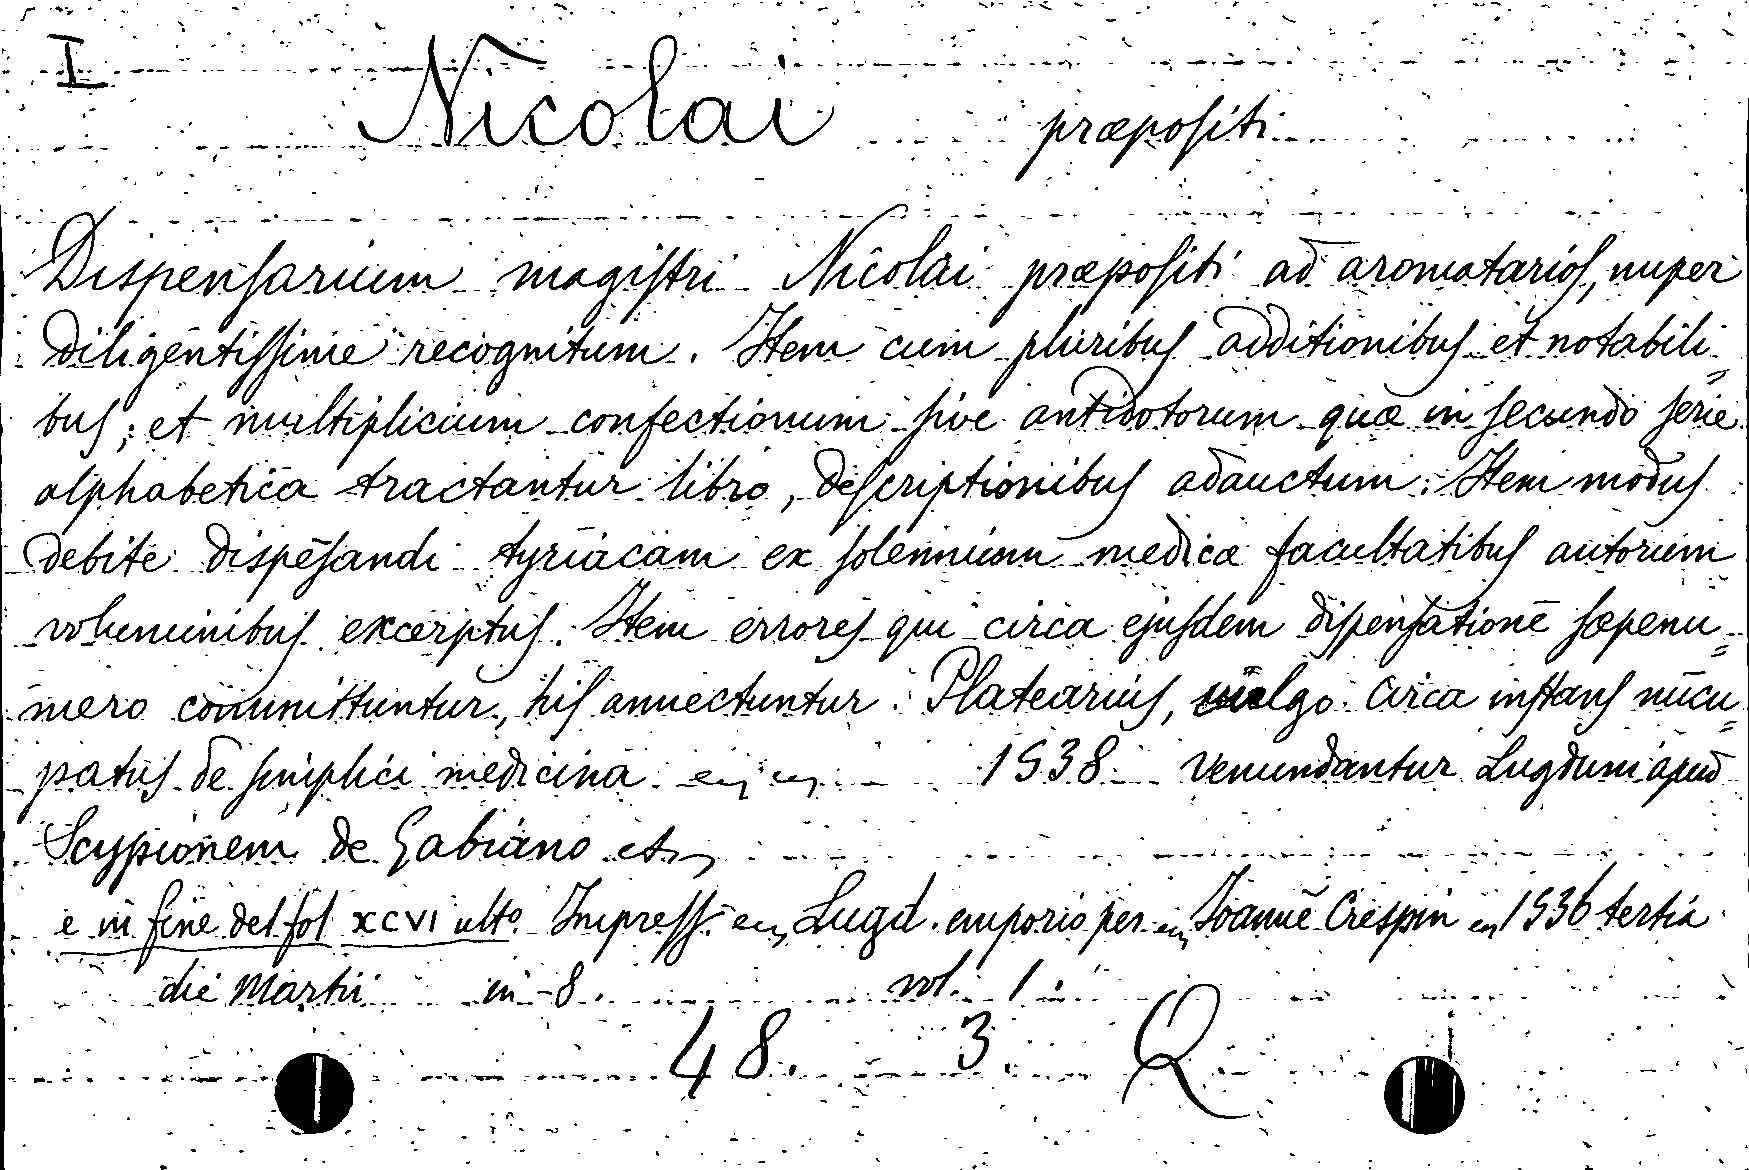 I
Nicolai præpositi
Dispensarium magistri Nicolai præpositi ad aromatarios, nuper
diligentissime recognitum. Item cum pluribus additionibus et notabili=
bus; et multiplicium confectionum sive antidotorum quæ in secundo serie
alphabetica tractantur libro, descriptionibus adauctum. Item modus
debite dispēsandi tyriacam ex solennium medicæ facultatibus autorum
voluminibus excerptus. Item errores qui circa ejusdem dispensationē sæpenu=
mero committuntur, his annectuntur. Platearius, vulgo Circa instans nūcu=
patus de simplici medicina 1538 Venundantur Lugduni apud
Scypionem de Gabiano etc
e in fine del fol XCVI ulto Impress. en Lugd. emporio per en Joannē Crespin en 1536 tertia
die Martii in 8. vol. 1.
48. 3. Q